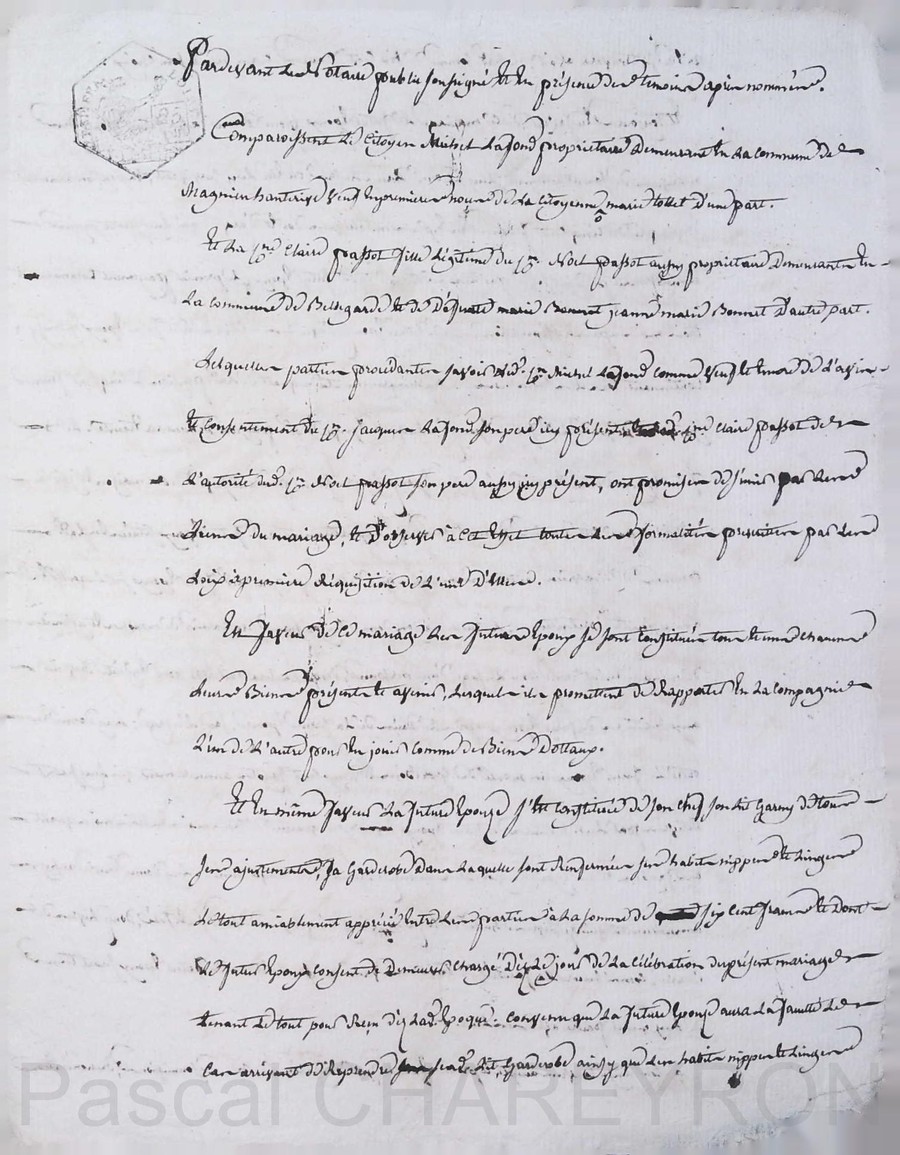 Pardevant le Notaire public soussigné et en présence des temoins après nommées.
Comparoissent le Citoyen Michel Lafond propriétaire demeurant en la commune de
Magnien hanterive veuf en premiere noces de la Citoyenne marie tollet d'une part.
et la Cne Claire passot fille légitime du Cn Noel passot aussy propriétaire demeurante en
la commune de Bellegarde et de Défunte marie Bonnet jeanne marie Bonnet D'autre part.
Lesquelles parties procédantes savoir led. Cn Michel Lafond comme veuf et encore de l'avis
et consentement du Cn. Jacques Lafond son pere icy présent Cne Claire passot de
L'autorité dud. Cn Noel passot son pere aussy icy présent, ont promis de s'unir par les
Liens du mariage, et D'observer à cet effet toutes les formalités prescrites par les
Loix à premiere Réquisition de L'un D'Eux.
En faveur de ce mariage les future Epoux se sont Constitués tous et uns chacuns
leurs Biens présents et avenir, lesquels ils promettent de Rapporter en la Compagnie
L'un de L'autre pour en jouir comme de Biens Dottaux.
Et en même faveur la future Epouze s'est Constituée de son chef son lit Garny de tours
ses ajustements, sa Garderobe dans laquelle sont Renfermées ses habits nippes et linges
Le tout amiablement apprécié entre les parties à la somme de six cent francs et dont
Le futur Epoux consent de Demeurer chargé Dès le jour de la Célébration du présent mariage
tenant le tout pour Reçu dès lade. Epoque. Convenu que la future Epouze aura la faculté le
Cas arrivant de Reprendre sesd. lit Garderobe ainsy que les habits nippes et linges
Pascal CHAREYRON